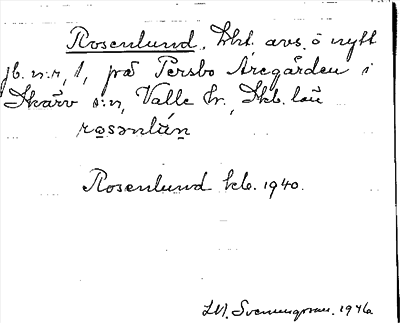 Rosenlund, lht. avs. å nytt
jb. n:r, 1, på Persbo Åregården i
Skärv s:n, Valle hr., Skb. län
rosənlún
Rosenlund kb. 1940.
Svenungsson. 1946